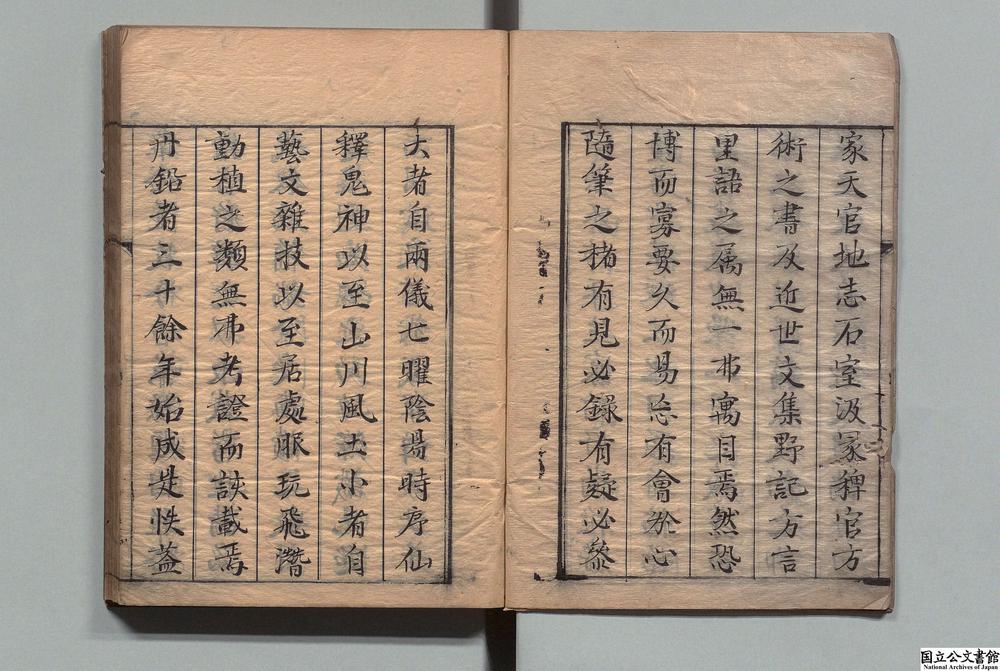 家天官地志石室汲冢稗官方
術之書及近世文集野記方言
里語之属無一弗寓目焉然恐
博而寡要久而易忘有會於心
隨筆之楮有見必録有疑必叅
大者自兩儀七曜陰陽時序仙
釋鬼神以至山川風土小者自
藝文雜技以至居處服玩飛潛
動植之類無弗考證而詼載焉
丹鉛者三十餘年始成是帙葢
国立公文書館
National Archives of Japan